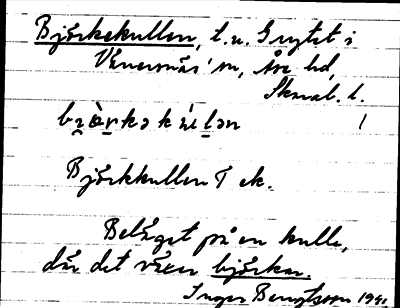 Björkekullen, t. u. Grytet i
Vänersnäs' sn, Åse hd,
Skarab. l.
bɟàrkə kùlən /
Björkkullen T ek.
Beläget på en kulle,
där det växer björkar.
Inger Bengtsson 1941